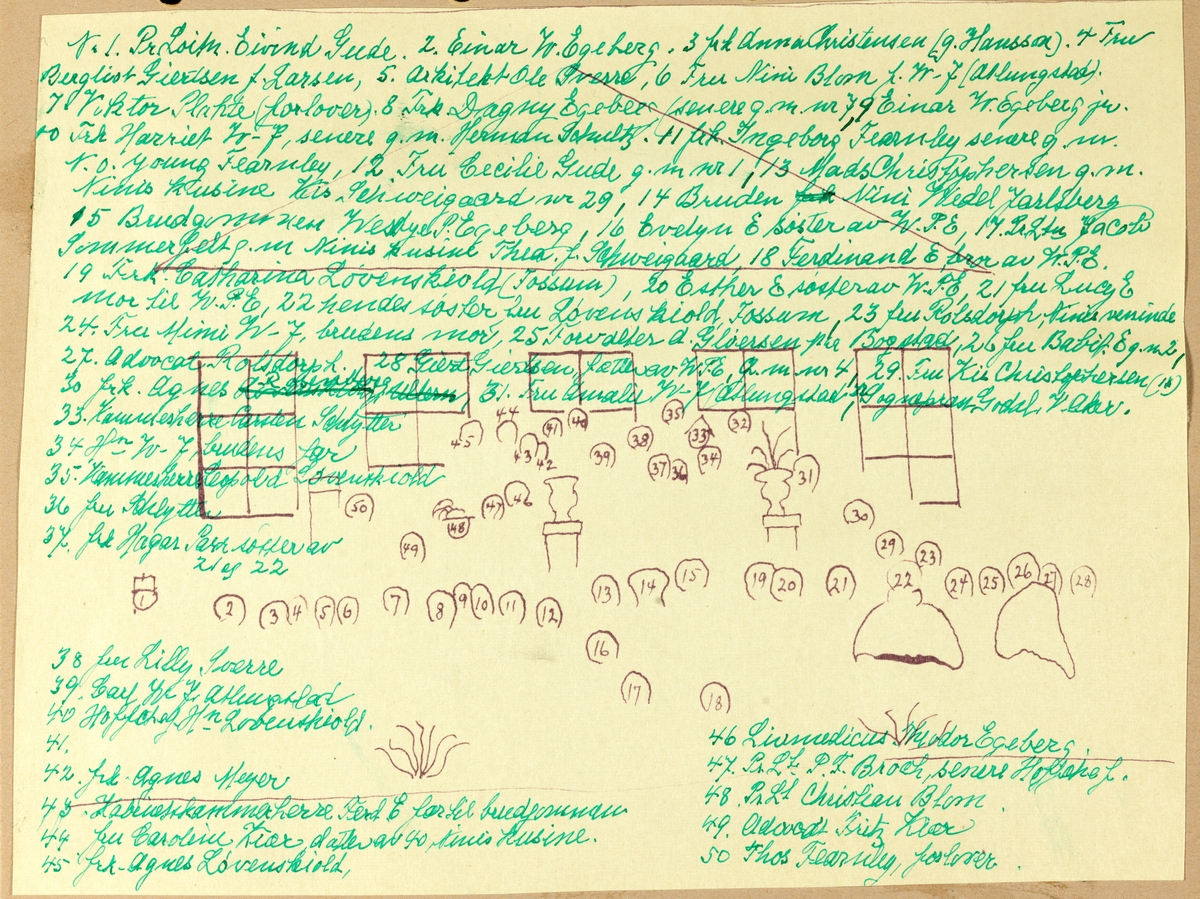 Nr 1. Pr.Løitn. Eivind Gude. 2. Einar W. Egeberg. 3 frk Anna Christensen (g. Hansson). 4 Fru
Bergliot Giertsen f. Larsen, 5. Arkitekt Ole Sverre, 6 Fru Nini Blom f. W-J (Atlungstad).
7 Viktor Plahte (forlover). 8 Frk Dagny Egeberg (senere g.m. nr 7, 9 Einar W. Egeberg jr.
10 Frk Harriet W-J, senere g.m. Herman Schultz. 11 frk. Ingeborg Fearnley senere g.m.
N.O. Young Fearnley, 12 Fru Cecilie Gude g.m nr 1, 13 Mads Christophersen g.m.
Ninis kusine Kis Schweigaard nr 29, 14 Bruden Nini Wedel Jarlsberg
15 Brudgommen Westye P. Egeberg, 16 Evelyn E søster av W.P.E, 17. Pr.Ltn Jacob
Sommerfeldt g.m Ninis kusine Thea f. Schweigaard, 18 Ferdinand E bror av W.P.E.
19 Frk Catharina Løvenskiold (Fossum), 20 Esther E søster av W.P.E, 21 fru Lucy E
mor til W.P.E, 22 hendes søster fru Løvenskiold, Fossum, 23 fru Rolsdorph, Ninis veninde
24. Fru Mimi W-J, brudens mor, 25 Forvalter d. Gløersen på Bogstad, 26 fru Babit. E g.m 2,
27. Advocat Rolsdorph. 28 Giert Giertsen, fetter av W.P.E, g.m nr 4, 29. Fru Kis Christophersen (13)
30 frk. Agnes 31. Fru Amalie W-J Atlungstad, 32 Sogneprest Godal, V. Aker.
33. Kammerherre Carsten Schlytter
34 Hn W-J, brudens far
35. Kammerherre Leopold Løvenskiold
36 fru Schlytter
37. frk Hagar Parr søster av
21 og 22
45 44 43 42 41 40 39 38 35 37 36 33 34 32 31
50 49 48 47 46 30 29 23
1 2 3 4 5 6 7 8 9 10 11 12 13 14 15 19 20 21 22 24 25 26 27 28
16
17 18
38 fru Lilly Sverre
39. Carl W-J. Atlungstad
40 Hoffchef Hn Løvenskiold.
41.
42. frk. Agnes Meyer
43. Kabinetskammerherre Ferd E far til brudgommen
44 fru Caroline Kiær, datter av 40, Ninis kusine.
45 frk. Agnes Løvenskiold,
46 Livmedicus Theodor Egeberg.
47. Pr.Lt. P.F. Broch, senere Hoffchef.
48 Pr.Lt Christian Blom
49. Advocat Fritz Kiær
50 Thos Fearnley, forlover.